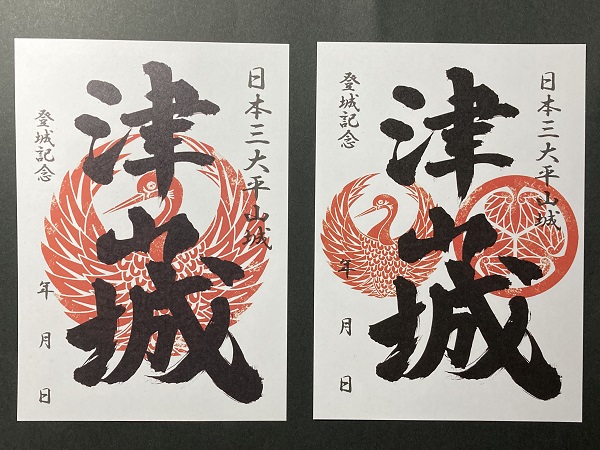 日本三大平山城
津山城
登城記念
年 月 日
日本三大平山城
津山城
登城記念
年 月 日